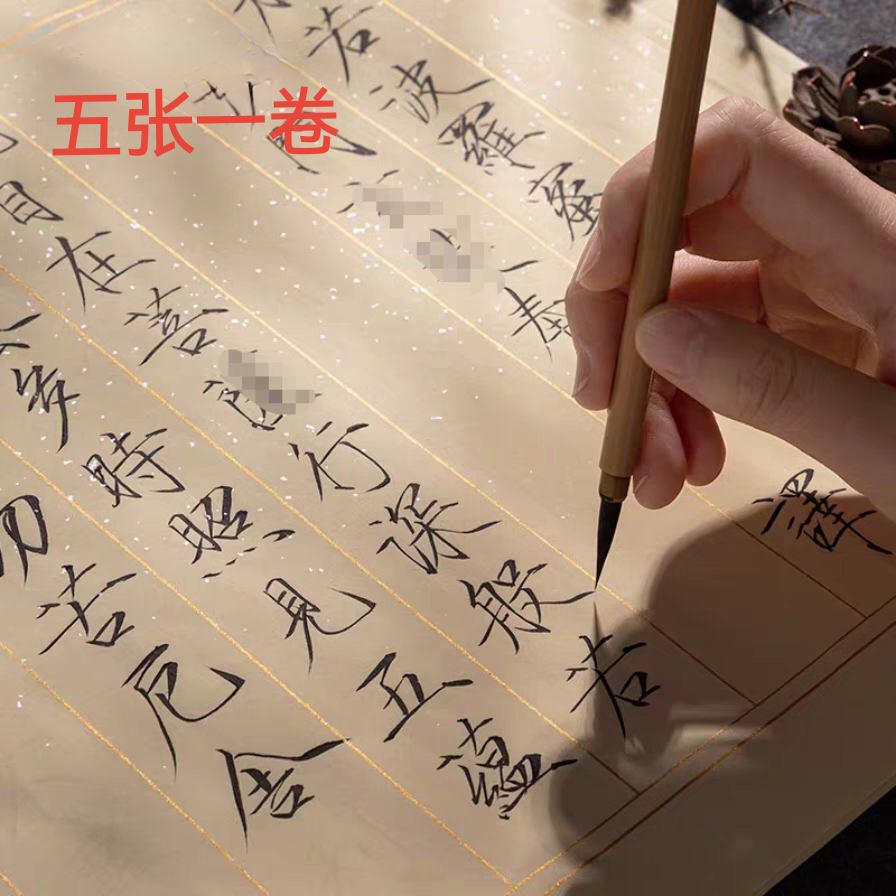 五张一卷
若波羅蜜
奉譯
自在菩行深般若
多時照見五蘊
苦厄舍